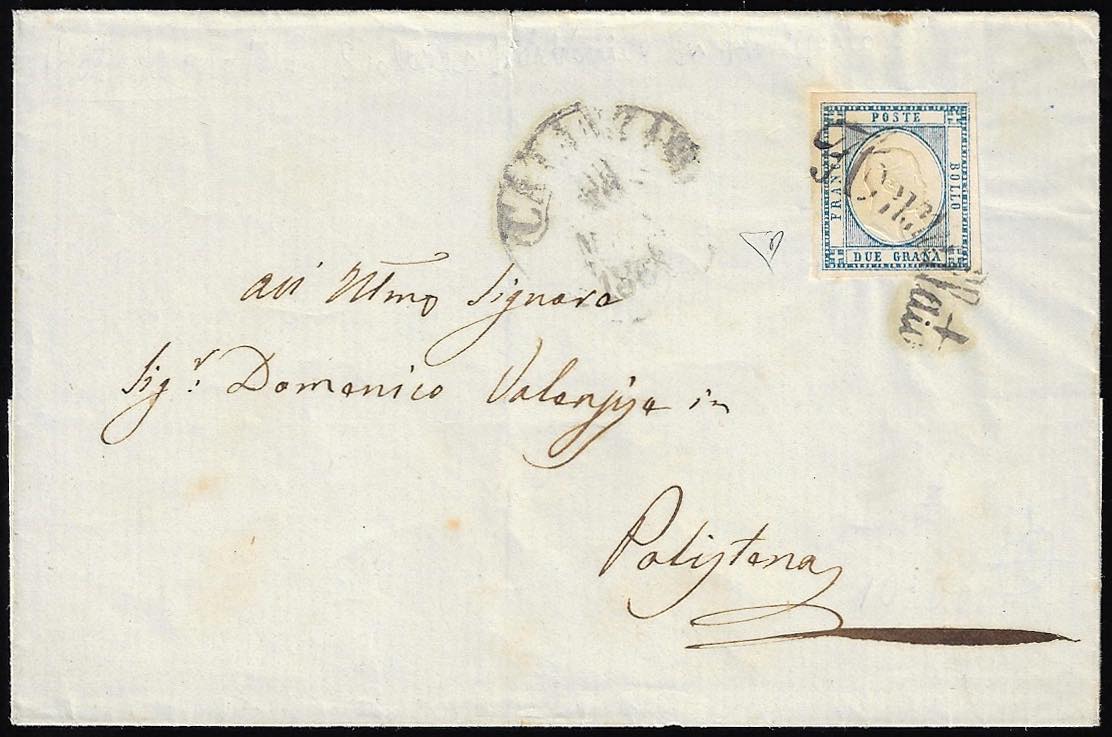 POSTE
FRANCO
BOLLO
DUE GRANA
All' Illmo Signore
Sig.r Domenico Valensise in
Polistena